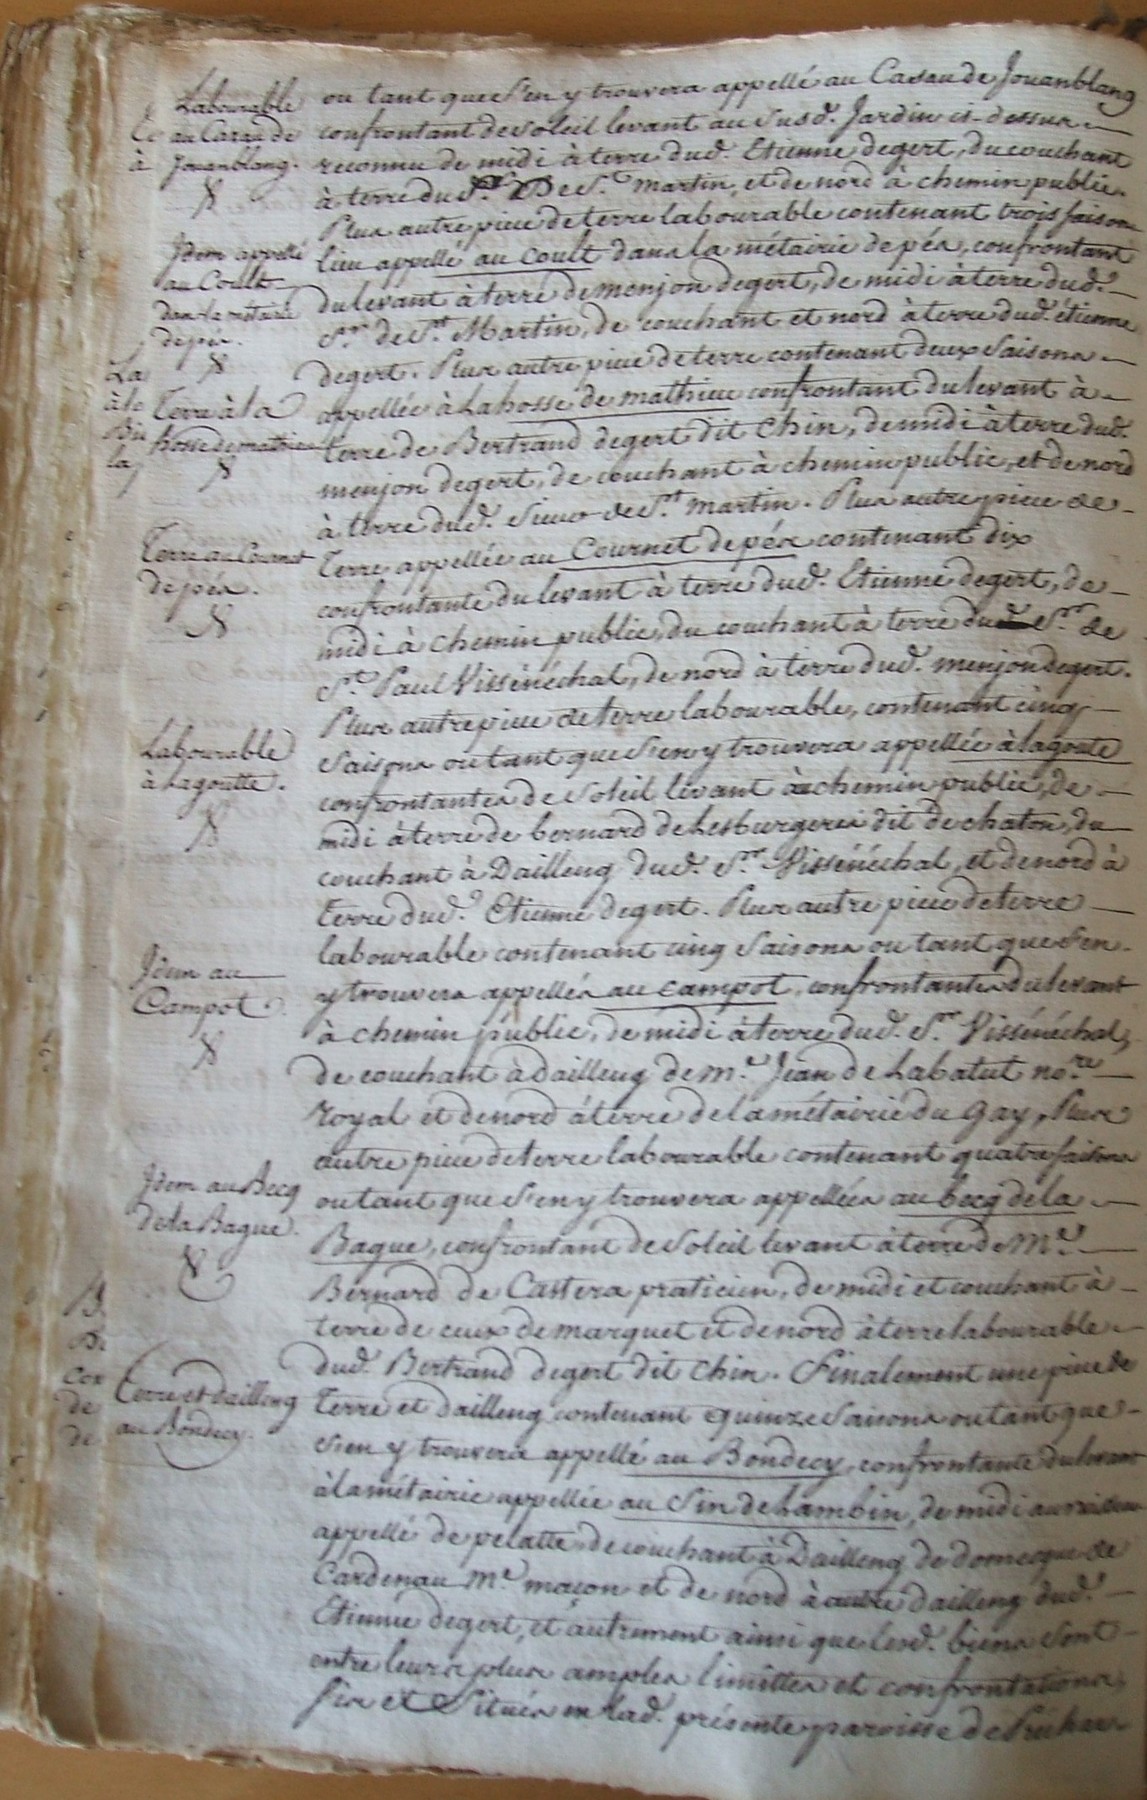 Labourable
au Casau de
Jouanblang.
ou tant que s'en y trouvera appellé au Casau de Jouanblang
confrontant de soleil levant au susd. Jardin ci-dessus
reconnu de midi à terre dud. Etienne degert, du couchant
à terre dud. Sr. De St. martin, et de nord à chemin public.
Plus autre piece de terre labourable contenant trois saisons
Idem appellé
au Coult
dans la métairie
de péa.
lieu appellé au coult dans la métairie de péa, confrontant
du levant à terre de menjon degert, de midi à terre dud.
Sr. de St. Martin, de couchant et nord à terre dud. étienne
degert. Plus autre piece de terre contenant deux saisons
Terre à la
hosse de mathieu
appellée à Lahosse de mathieu confrontant du levant à
terre de Bertrand degert dit Chin, de midi à terre dud.
menjon degert, de couchant à chemin public, et de nord
à terre dud. Sieur de St. martin. Plus autre piece de
Terre au Cournet
de péa.
Terre appellée au Cournet de péa contenant dix
confrontante du levant à terre dud. Etienne degert, de
midi à chemin public, du couchant à terre du Sr. de
St. Paul Vissénéchal, de nord à terre dud. menjon degert.
Plus autre piece de terre labourable, contenant cinq
Labourable
à Lagoutte.
Saisons ou tant que s'en y trouvera appellée à lagoute
confrontantes de soleil levant à chemin public, de
midi à terre de bernard de Lesburgeres dit de chaton, du
couchant à Dailleng dud. Sr. Vissénéchal, et de nord à
terre dud. Etienne degert. Plus autre piece de terre
labourable contenant cinq saisons ou tant que s'en
Idem au
Campot.
y trouvera appellés au campot, confrontantes du levant
à chemin public, de midi à terre dud. Sr. Vissénéchal,
de couchant à dailleng de me. Jean de Labatut nore.
royal et de nord à terre de la métairie du Gay, Plus
autre piece de terre labourable contenant quatre saisons
Idem au Becq
de la Bague.
ou tant que s'en y trouvera appellées au becq de la
Baque, confrontant de soleil levant à terre de Me.
Bernard de Castera praticien, de midi et couchant à
terre de ceux de marquet et de nord à terre labourable
dud. Bertrand degert dit Chin. Finalement une piece de
Terre et dailleng
au Bondecy.
Terre et dailleng contenant quinze saisons ou tant que
s'en y trouvera appellé au Bondecy, confrontante du levant
à la métairie appellée au Sin de Lambin, de midi au ruisseau
appellé de pelatte, de couchant à Dailleng de domecque de
Cardenau Me. maçon et de nord à autre dailleng dud.
Etienne degert, et autrement ainsi que lesd. biens sont
entre leurs plus amples limittes et confrontations,
sis et situés en lad. présente paroisse de Préchac